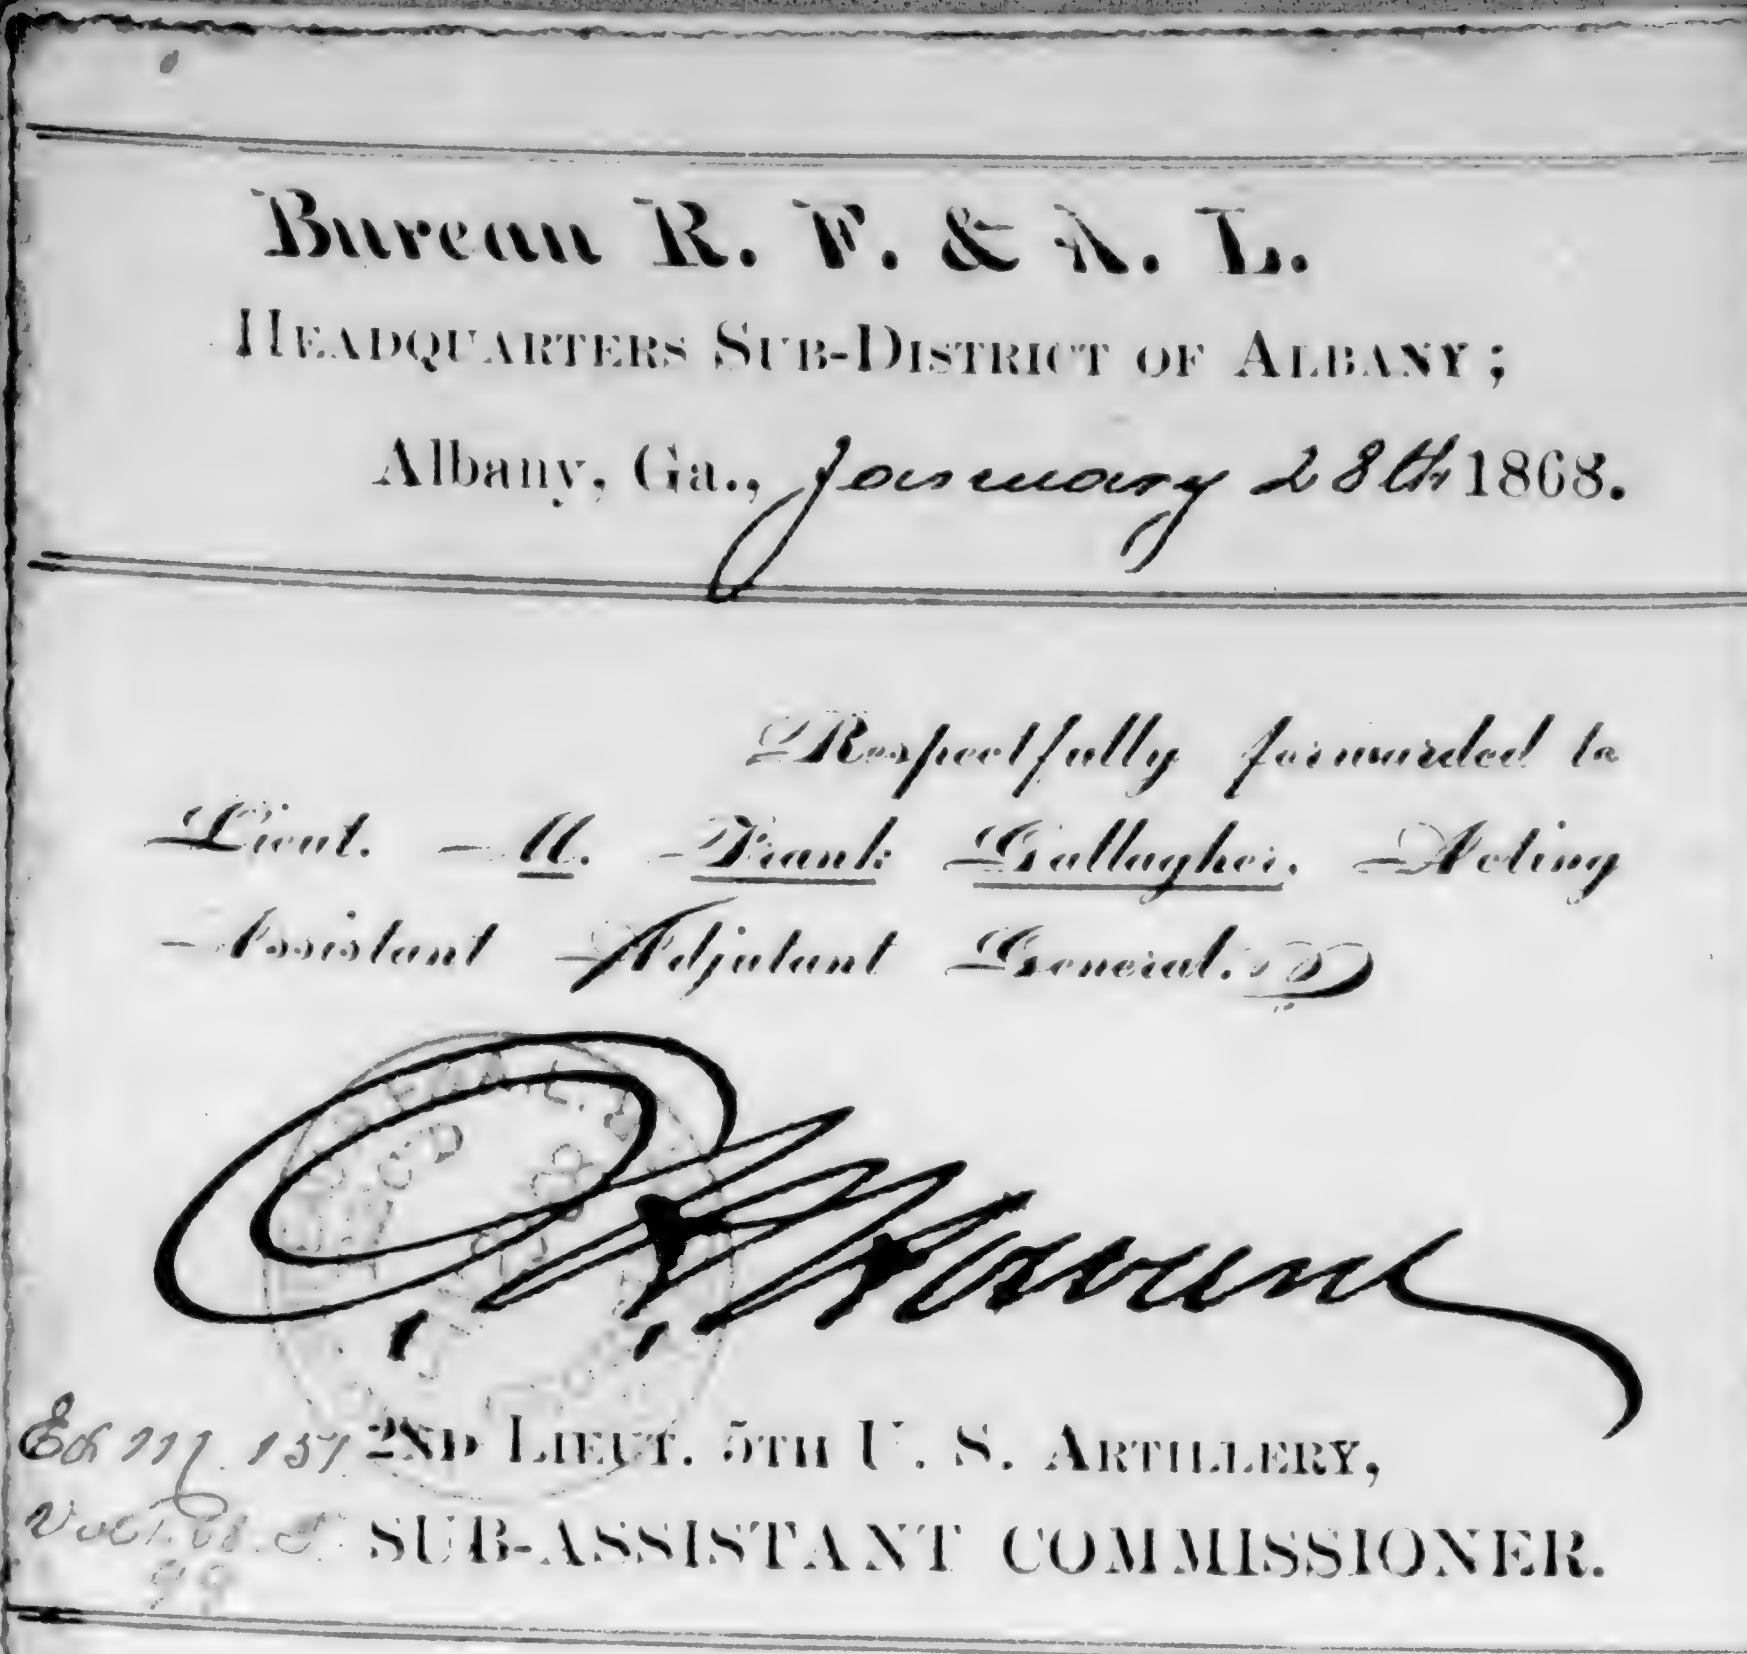 Bureau R. F. & A. L.
HEADQUARTERS SUB-DISTRICT OF ALBANY;
Albany, Ga., January 28th 1868.
Respectfully forwarded to
Lieut. M. Frank Gallagher. Acting
Assistant Adjutant General.
2ND LIEUT. 5TH U. S. ARTILLERY,
SUB-ASSISTANT COMMISSIONER.